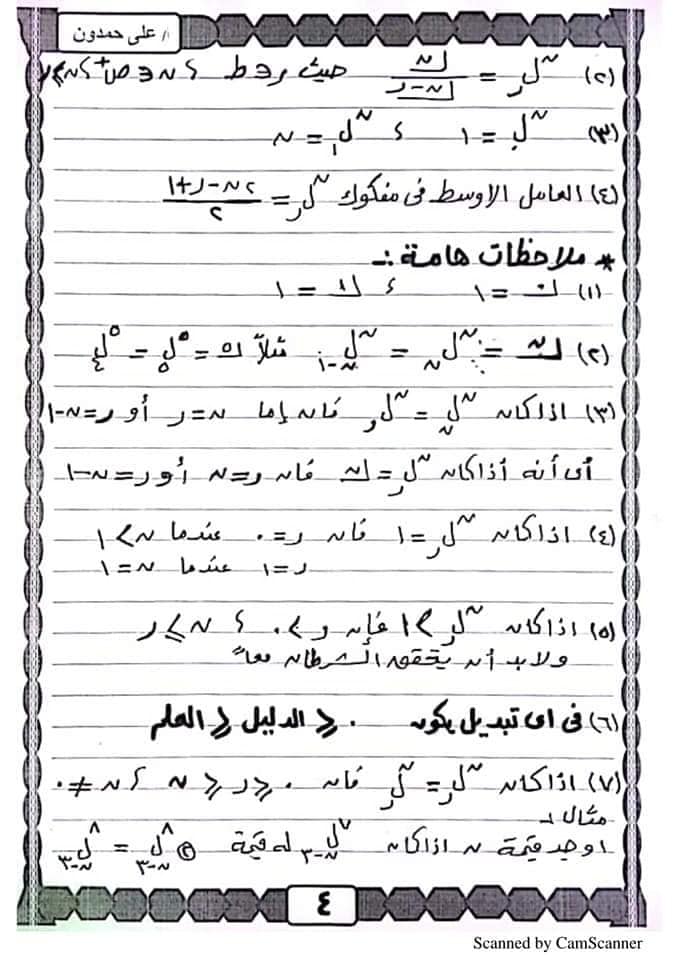 ا/ على حمدون
(٢) ⁿلر = ⌊ن / ⌊ن-ر حيث ر ∈ ط ، ن ∈ ص⁺ ، ن ≥ ر
(٣) ⁿل٠ = ١ ، ⁿل١ = ن
(٤) العامل الاوسط فى مفكوك ⁿلر = (٢ن-ر+١)/٢
* ملاحظات هامة :-
(١) ⌊٠ = ١ ، ⌊١ = ١
(٢) ⌊ن = ⁿلن = ⁿلن-١ مثلاً ⌊٥ = ⁵ل٥ = ⁵ل٤
(٣) اذا كان ⁿلن = ⁿلر فان إما ن=ر أو ر=ن-١
أى أنه أذا كان ⁿلر = ⌊ن فان ر=ن أو ر=ن-١
(٤) اذا كان ⁿلر = ١ فان ر=٠ عندما ن>١
ر=١ عندما ن=١
(٥) اذا كان ⁿلر > ١ فإن ر > ٠ ، ن ≥ ر
ولابد أن يتحقق الشرطان معاً
(٦) فى اى تبديل يكون ٠ ≤ الدليل ≤ العلم
(٧) اذا كان ⁿلر = ⁿلر فان ٠ ≤ ر ≤ ن ، ن ≠ ٠
مثال :-
اوجد قيمة ن اذا كان ⁷لن-٣ له قيمة ⁸لن-٣ = ⁸لن-٣
٤
Scanned by CamScanner